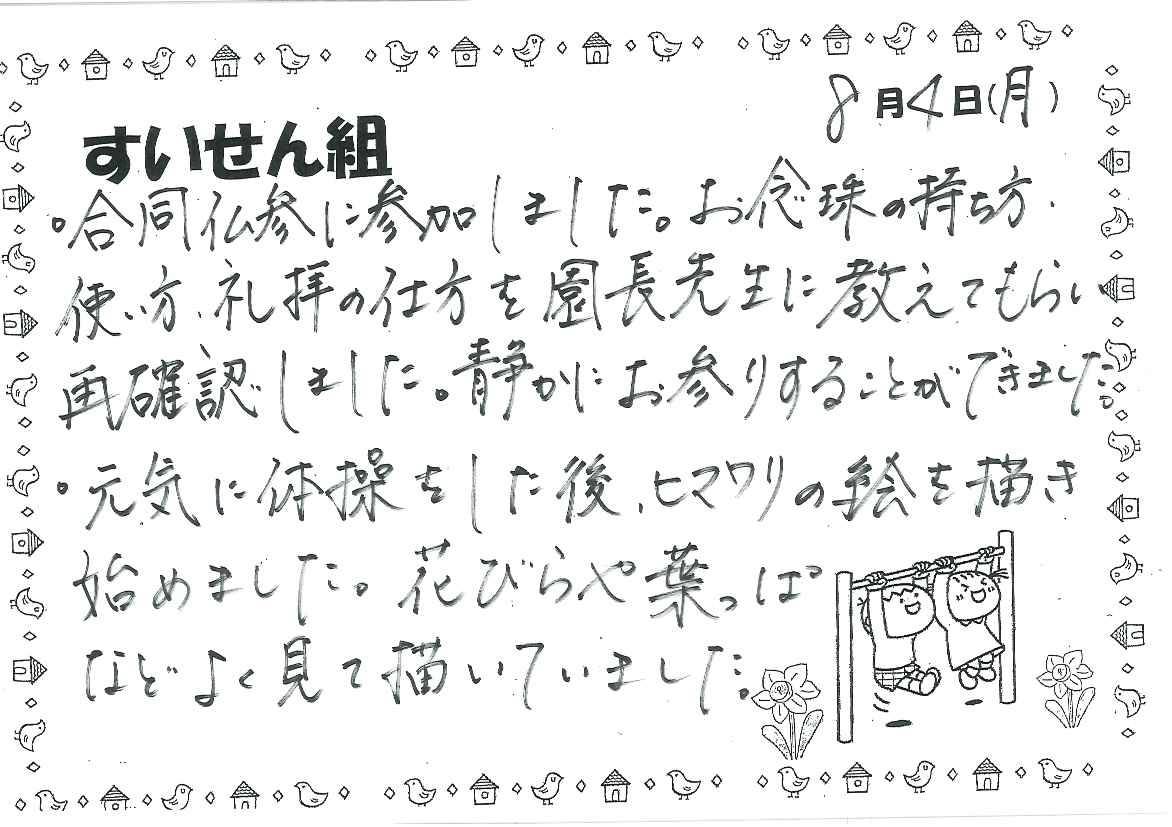 8月4日(月)
すいせん組
・合同仏参に参加しました。お念珠の持ち方、
使い方、礼拝の仕方を園長先生に教えてもらい
再確認しました。静かにお参りすることができました。
・元気に体操をした後、ヒマワリの絵を描き
始めました。花びらや葉っぱ
などよく見て描いていました。